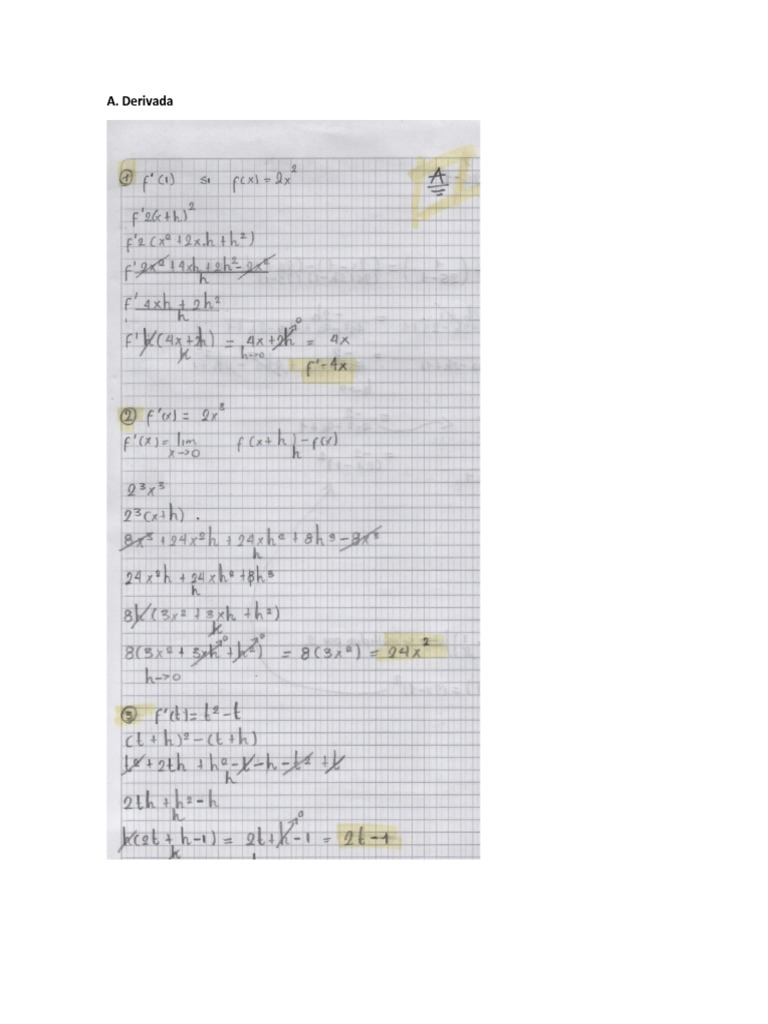 A. Derivada
① f'(1) si f(x) = 2x²
A
f'2(x+h)²
f'2(x²+2x.h+h²)
f' 2x²+4xh+2h²-2x²
h
f' 4xh + 2h²
h
f' h(4x+2h) = 4x+2h = 4x
h h→0 0
f'=4x
② f'(x) = 2x³
f'(x) = lim f(x+h)-f(x)
x→0 h
2³x³
2³(x+h) .
8x³ + 24x²h + 24xh² + 8h³ - 8x³
h
24x²h + 24xh² + 8h³
h
8h(3x² + 3xh + h²)
h
8(3x² + 3xh + h²) = 8(3x²) = 24x²
h→0
③ f'(t) = t²-t
(t+h)² - (t+h)
t² + 2th + h² - t - h - t² + t
h
2th + h² - h
h
h(2t + h - 1) = 2t + h - 1 = 2t-1
h